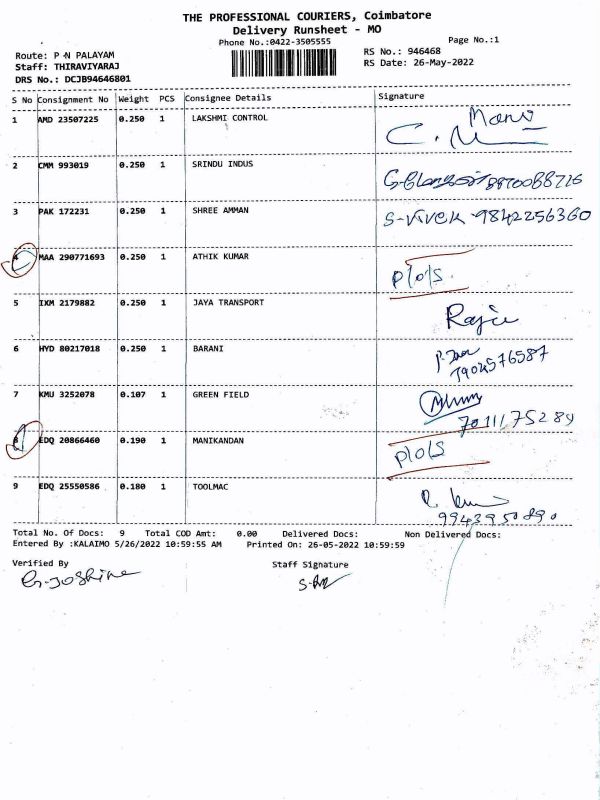 THE PROFESSIONAL COURIERS, Coimbatore
Delivery Runsheet - MO
Phone No.:0422-3505555
Page No.:1
Route: P N PALAYAM
RS No.: 946468
Staff: THIRAVIYARAJ
RS Date: 26-May-2022
DRS No.: DCJB94646801
S No Consignment No Weight PCS Consignee Details Signature
1 AMD 23507225 0.250 1 LAKSHMI CONTROL Mano
2 CMM 993019 0.250 1 SRINDU INDUS
3 PAK 172231 0.250 1 SHREE AMMAN S-Vivek 9842256360
4 MAA 290771693 0.250 1 ATHIK KUMAR P/o/s
5 IXM 2179882 0.250 1 JAYA TRANSPORT Raju
6 HYD 80217018 0.250 1 BARANI
7904576587
7 KMU 3252078 0.107 1 GREEN FIELD
7011175289
8 EDQ 20866460 0.190 1 MANIKANDAN P/o/s
9 EDQ 25550586 0.180 1 TOOLMAC
9943950890
Total No. Of Docs: 9 Total COD Amt: 0.00 Delivered Docs: Non Delivered Docs:
Entered By :KALAIMO 5/26/2022 10:59:55 AM Printed On: 26-05-2022 10:59:59
Verified By Staff Signature
G-Joshine